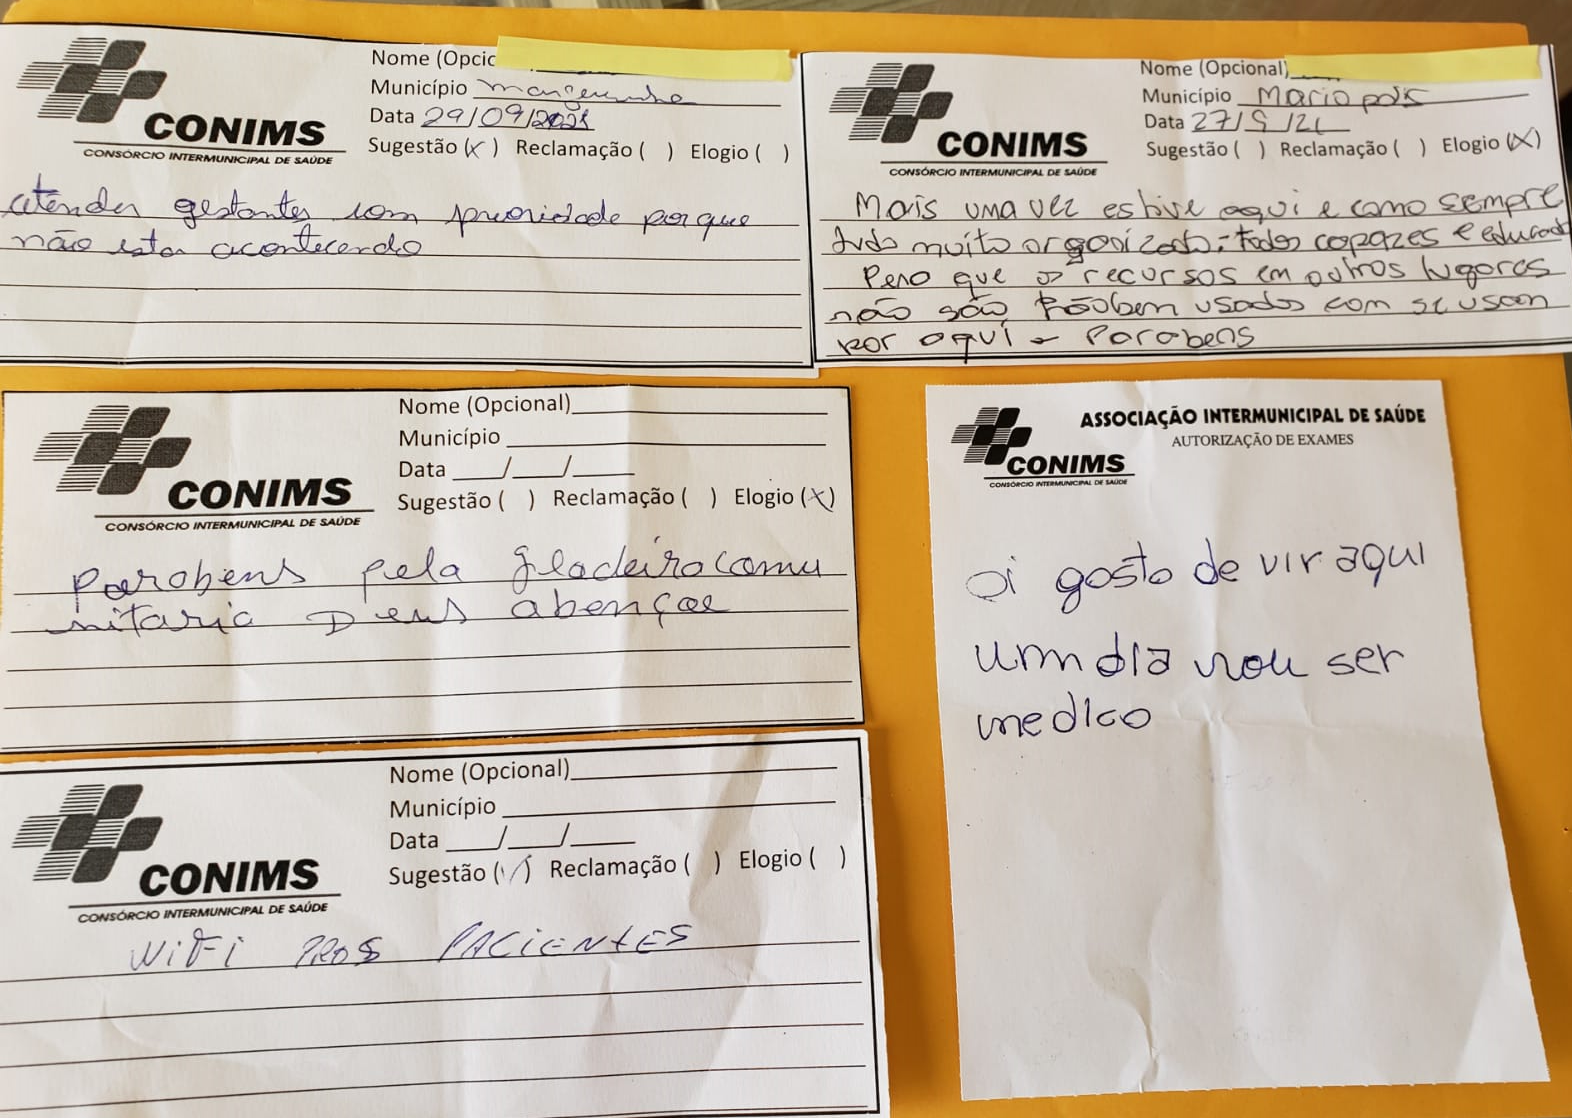 CONIMS
CONSÓRCIO INTERMUNICIPAL DE SAÚDE
Nome (Opcio
Município mangueirinha
Data 29/09/2021
Sugestão (x) Reclamação ( ) Elogio ( )
atender gestantes com prioridade porque
não esta acontecendo
CONIMS
CONSÓRCIO INTERMUNICIPAL DE SAÚDE
Nome (Opcional)
Município Mariopolis
Data 27/9/21
Sugestão ( ) Reclamação ( ) Elogio (X)
Mais uma vez estive aqui e como sempre
tudo muito organizado, todos capazes e educado
Pena que os recursos em outros lugares
não são tãobem usados com se usam
por aqui - Parabens
CONIMS
CONSÓRCIO INTERMUNICIPAL DE SAÚDE
Nome (Opcional)
Município
Data / /
Sugestão ( ) Reclamação ( ) Elogio (X)
Parabens pela geladeira comu
nitaria Deus abençoe
ASSOCIAÇÃO INTERMUNICIPAL DE SAÚDE
AUTORIZAÇÃO DE EXAMES
CONIMS
CONSÓRCIO INTERMUNICIPAL DE SAÚDE
oi gosto de vir aqui
um dia vou ser
medico
CONIMS
CONSÓRCIO INTERMUNICIPAL DE SAÚDE
Nome (Opcional)
Município
Data / /
Sugestão (✓) Reclamação ( ) Elogio ( )
WiFi PROS PACiENTES